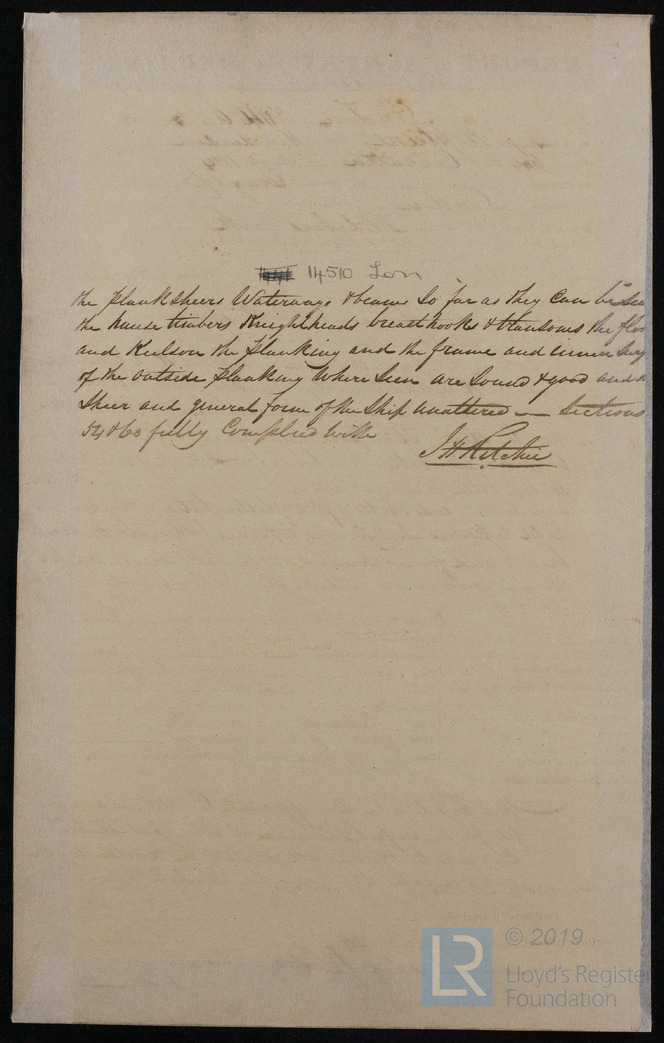 14510 Lon
the planksheers Waterways & beams so far as they can be seen
the hause timbers Knightheads breasthooks & transoms the floo
and Keelson the planking and the frame and inner surf
of the outside planking where seen are sound & good and
sheer and general form of the Ship unaltered — Sections
54 & 60 fully Complied with
J H Ritchie
© 2019
LR
Lloyd's Register
Foundation